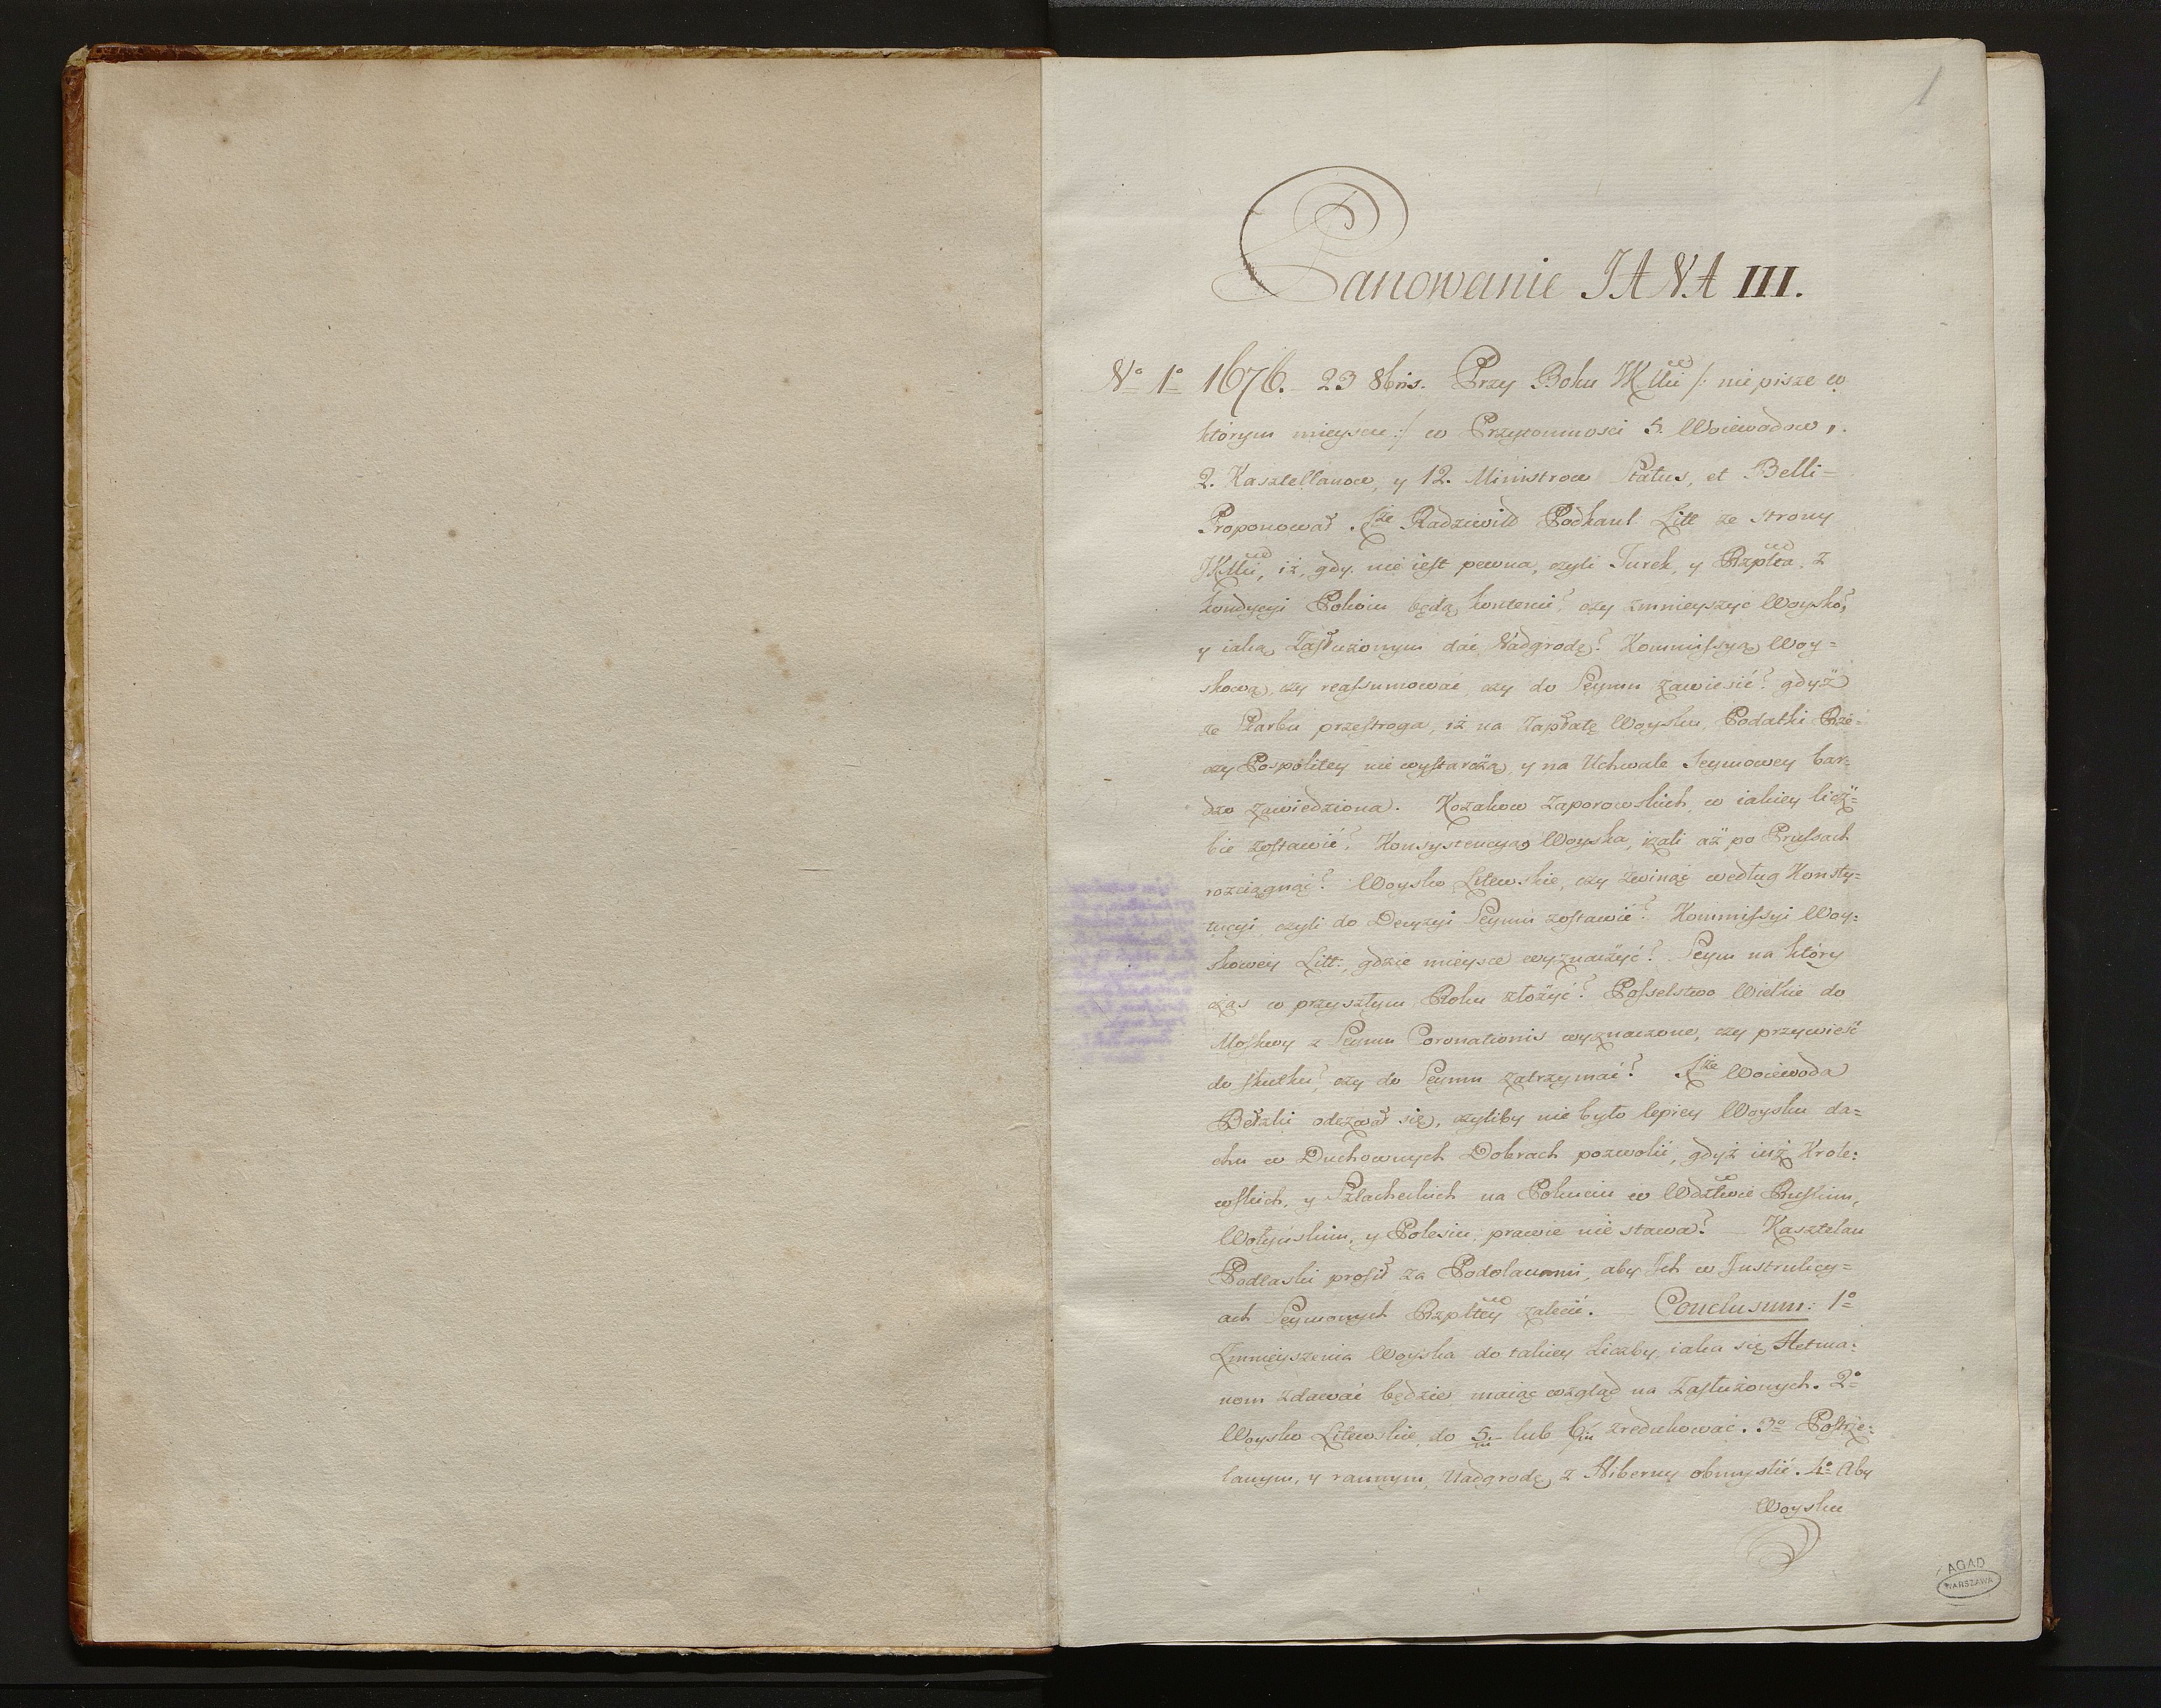 1
Panowanie JANA III.
No 1o 1676. 23 8bris. Przy Boku JKMci /: nie pisze w
którym mieyscu :/ w Przytomnosci 5. Woiewodow,
2. Kasztellanow, y 12. Ministrow Status, et Belli =
Proponował Xże Radziwiłł Podkanl. Litt ze strony
JKMci, iż, gdy nie iest pewna, czyli Turek, y Rzplta, z
kondycyi Pokoiu będą kontenci? czy zmnieyszyć Woysko?
y iaką Zasłużonym dać Nadgrodę? Kommissyą Woy=
skową, czy reassumować, czy do Seymu zawiesić? gdyż
ze Skarbu przestroga, iż na Zapłatę Woysku, Podatki Rze=
czy Pospolitey nie wystarczą, y na Uchwale Seymowey bar=
dzo zawiedziona. Kozakow Zaporowskich, w iakiey licz=
bie zostawić? Konsystencyą Woyska, iżali aż po Prusach
rozciągnąć? Woysko Litewskie, czy zwinąć według Konsty=
tucyi, czyli do Decyzyi Seymu zostawić? Kommissyi Woy=
skowey Litt:, gdzie mieysce wyznaczyć? Seym na który
czas w przyszłym Roku złożyć? Posselstwo Wielkie do
Moskwy z Seymu Coronationis wyznaczone, czy przywieść
do skutku? czy do Seymu zatrzymać? Xże Woiewoda
Bełzki odezwał się, czyliby nie było lepiey Woysku da=
chu w Duchownych Dobrach pozwolić, gdyż iuż Krole=
wskich, y Szlacheckich na Pokuciu w Wdztwie Ruskim,
Wołyńskim, y Polesiu, prawie nie stawa? Kasztelan
Podlaski prosił za Podolanami, aby Ich w Instrukcy=
ach Seymowych Rzpltey zalecić. Conclusum: 1o
Zmnieyszenia Woyska do takiey Liczby, iaka się Hetma=
nom zdawać będzie, maiąc wzgląd na Zasłużonych. 2o
Woysko Litewskie, do 5m lub 6m zredukować. 3o Postrze=
lanym, y rannym, Nadgrodę z Hiberny obmyslić. 4o Aby
Woysku
AGAD
WARSZAWA